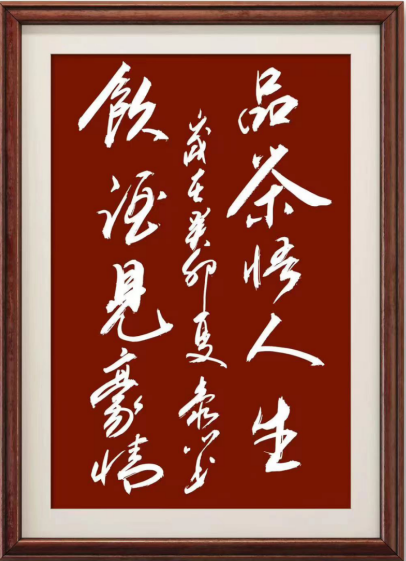 品茶悟人生
歲在癸卯夏
飲酒見豪情